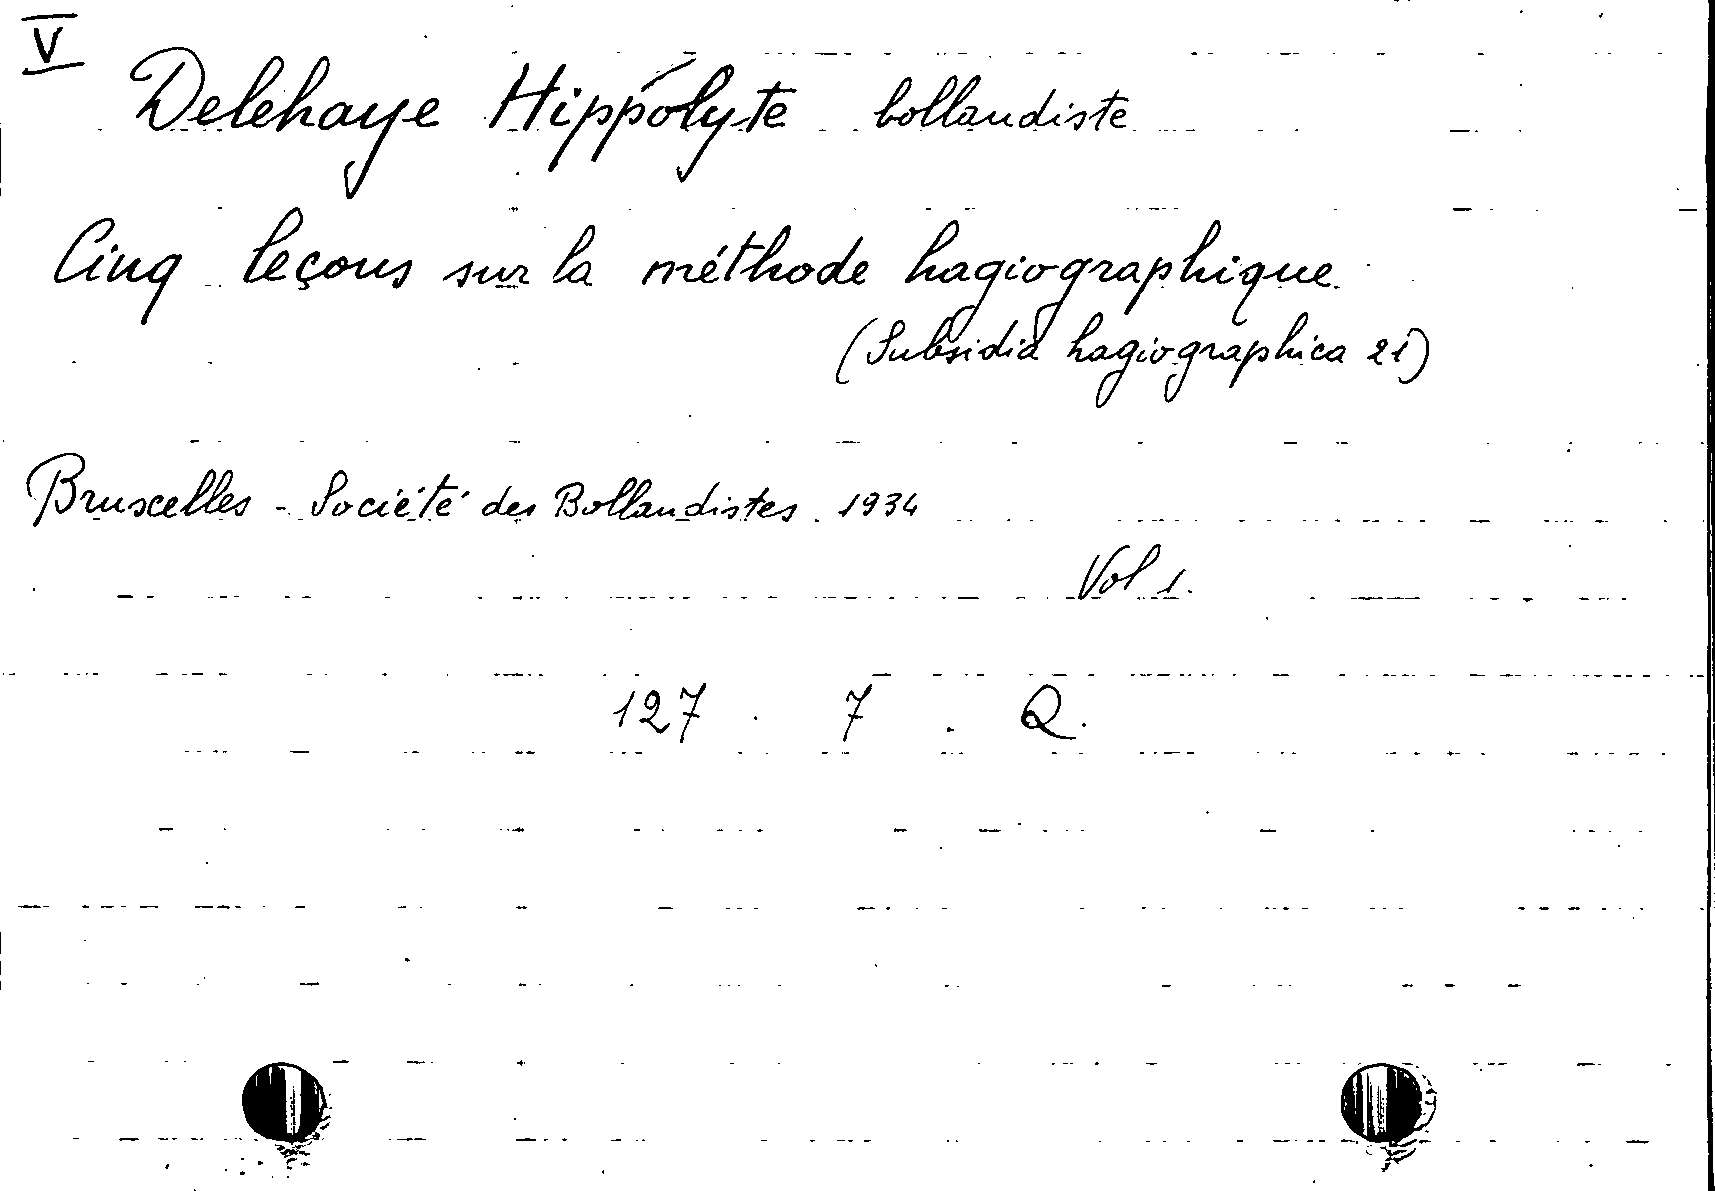 V
Delehaye Hippolyte bollandiste
Cinq leçons sur la méthode hagiographique
(Subsidia hagiographica 21)
Bruxelles - Société des Bollandistes. 1934
Vol 1.
127 . 7 . Q.